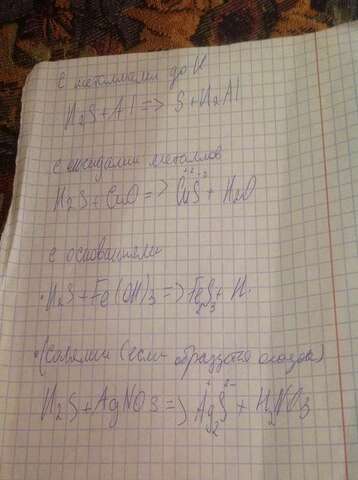 с металлами до H
H2S + Al => S + H2Al
с оксидами металлов
H2S + CuO => CuS + H2O
с основаниями
H2S + Fe(OH)3 => Fe2S3 + H
(солями (если образуется осадок)
H2S + AgNO3 => Ag2S + HNO3